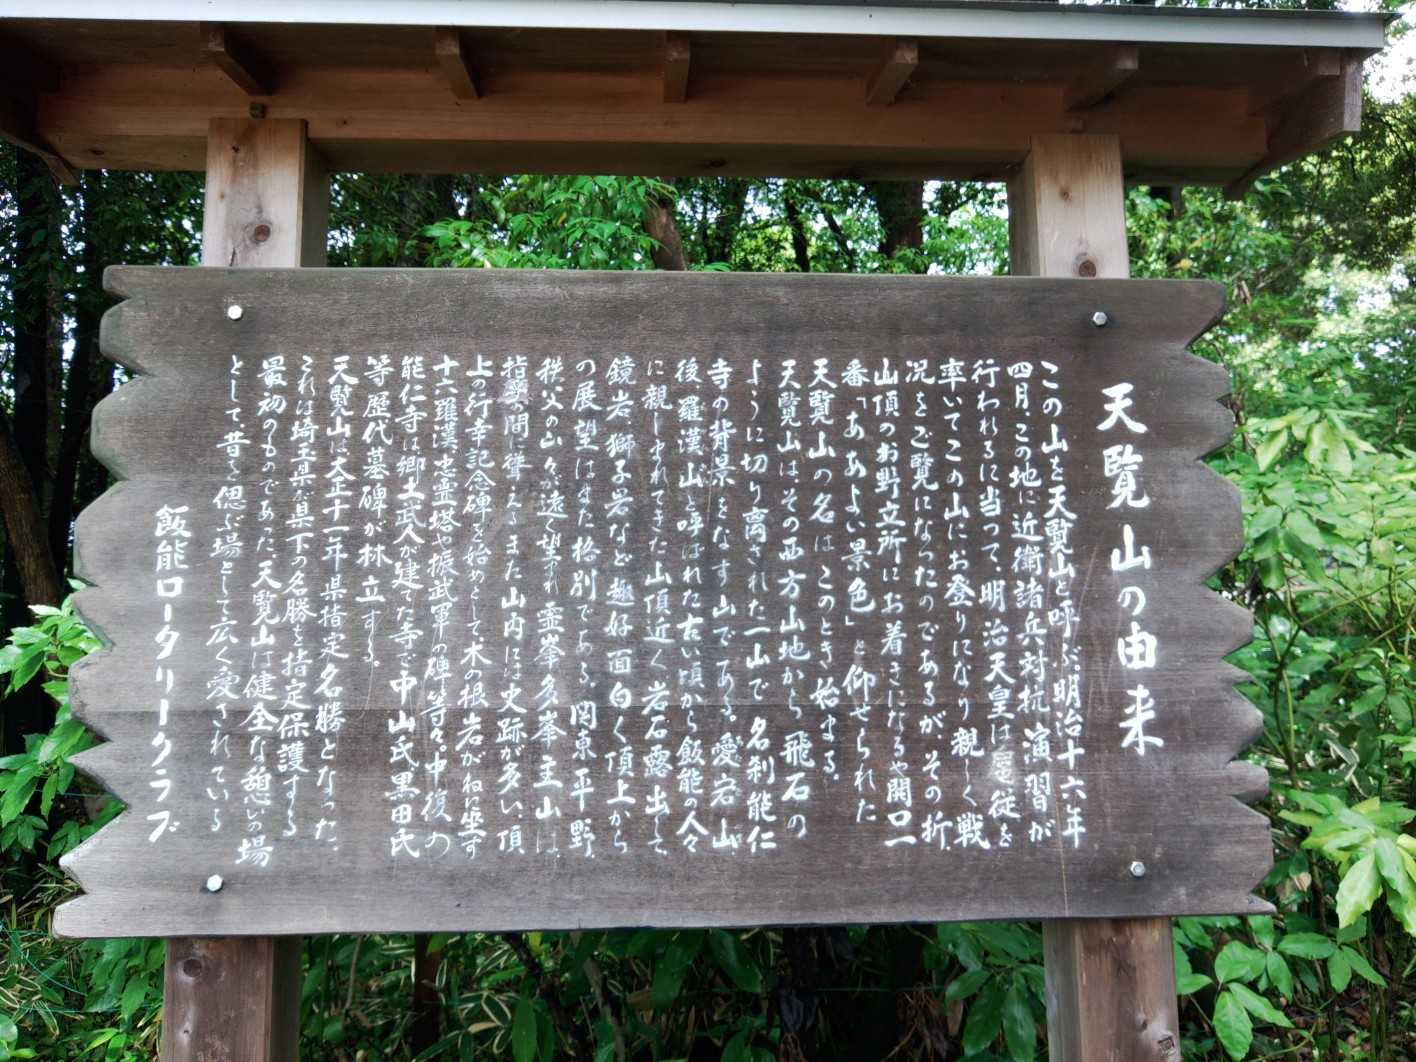 天覧山の由来
この山を天覧山と呼ぶ。明治十六年
四月、この地に近衛諸兵対抗演習が
行われるに当って、明治天皇は扈従を
率いてこの山にお登りになり親しく戦
況をご覧になったのであるが、その折、
山頂のお野立所にお着きになるや開口一
番「ああよい景色」と仰せられた
天覧山の名はこのとき始まる。
天覧山は、その西方山地から飛石の
ように切り離された一山で、名刹能仁
寺の背景をなす山である。愛宕山、
後羅漢山と呼ばれた古い頃から飯能の人々
に親しまれてきた山頂近く岩石露出して、
鏡岩、獅子岩など趣好面白く頂上から
の展望はまた格別である。関東平野、
秩父の山々が遠く望まれ霊峯多峯主山は、
指呼の間に聳えるまた山内には史跡が多い、頂
上の行幸記念碑を始めとして木の根岩がねに坐す
十六羅漢、忠霊塔や振武軍の碑等々。中復の
能仁寺は郷土武人が建てた寺で中山氏黒田氏
等歴代墓碑が林立する。
天覧山は大正十一年県指定名勝となった、
これは埼玉県が県下の名勝を指定保護する
最初のものであった天覧山は健全な憩いの場
として、昔を偲ぶ場として広く愛されている
飯能ロータリークラブ